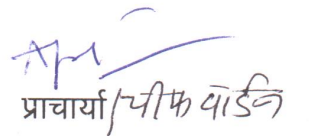 प्राचार्या/चीफ वॉर्डन